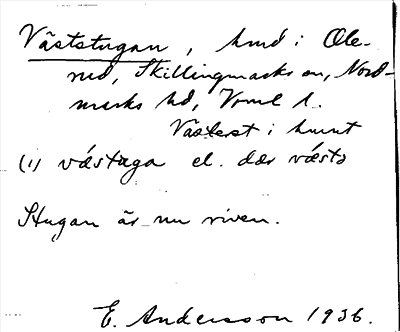 Väststugan, hmd i Ole-
rud, Skillingmarks sn, Nord-
marks hd, Vrml l.
Västerst i hmnt
(i) våstuga el. där våsto
Stugan är nu riven.
E. Andersson 1936.